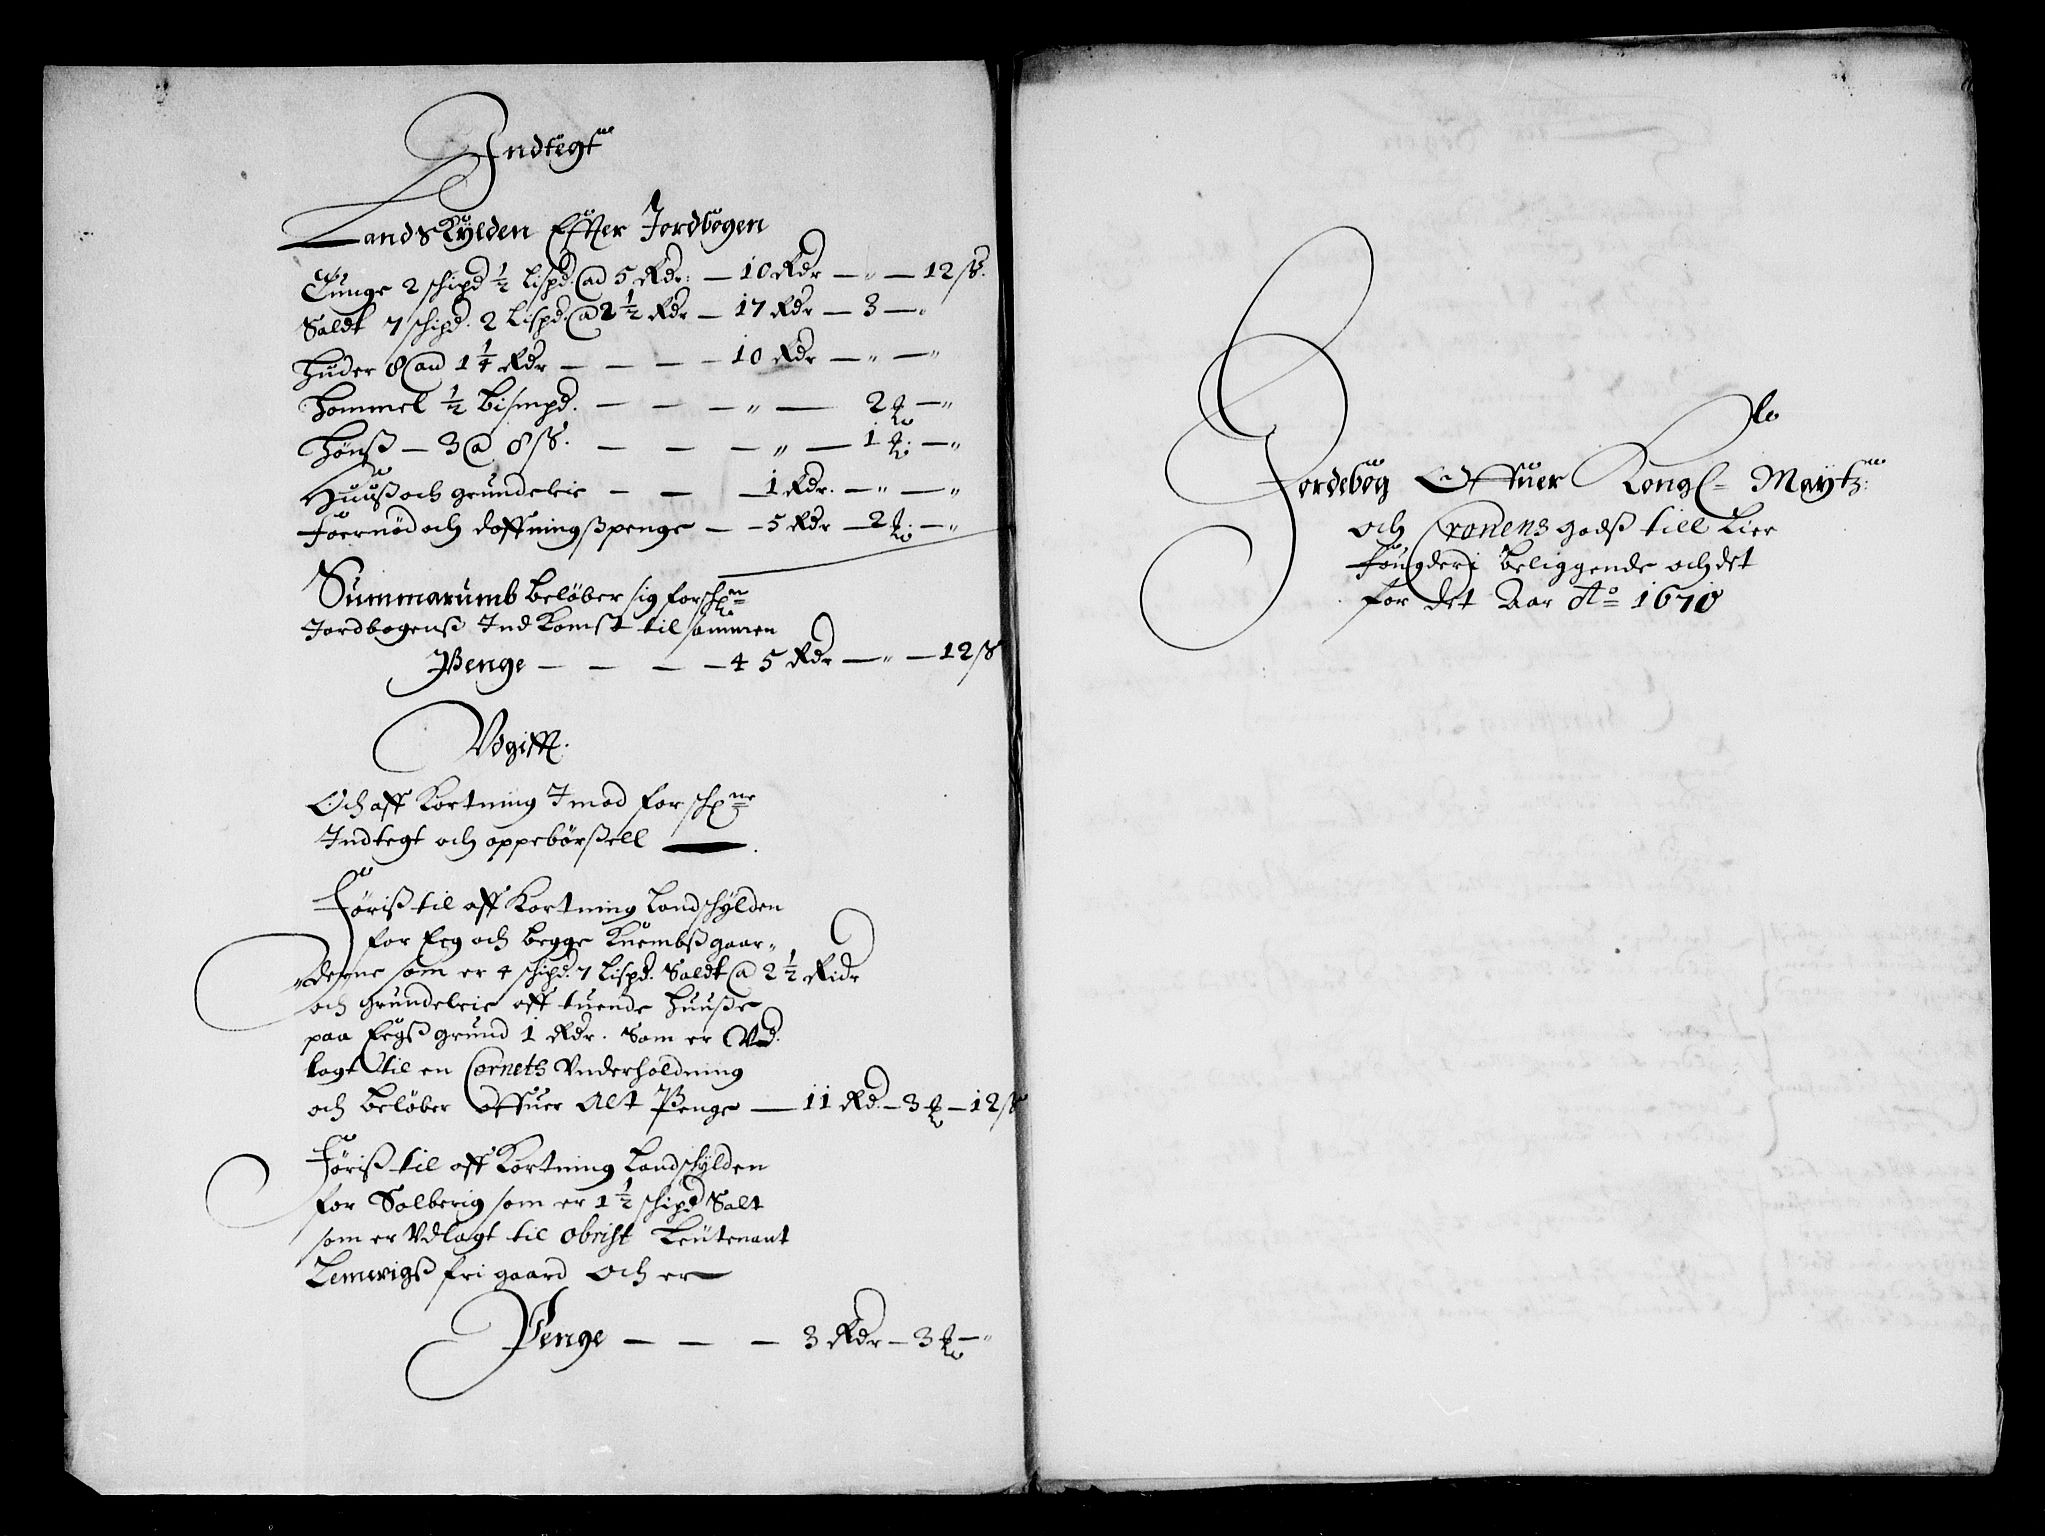 Indtegt
Landskÿlden Effter Jordbogen
Tunge 2 schipd ½ lispd. ad 5 Rdr: — 10 Rdr — „ — 12 ß.
Saldt 7 schipd. 2 lispd. @ 2½ Rdr — 17 Rdr — 3 — „
Huder 8 ad 1¼ Rdr — — — — 10 Rdr — „ — „
Hommel ½ bismpd. — — — „ — 2 ℔ — „
Hønß — 3 @ 8 ß. — — — „ — 1 ℔. — „
Huuß och grundeleie — — — 1 Rdr. — „ — „
Foernød och doffningßpenge — — 5 Rdr — 2 ℔. — „
Summarumb beløber sig forschne
Jordbogenß Indkomst til sammen
Penge — — — — 45 Rdr — „ — 12 ß
Vdgifft.
Och aff Kortning Imod forschne
Indtegt och oppebørßell —
Føriß til aff Kortning Landschÿlden
for Eeg och begge Kuembß gaar„
„derne som er 4 schipd. 7 lispd. Saldt @ 2½ Ridr
och grundeleie aff tuende Huuße
paa Eegß grund 1 Rdr. Som er Vd.
lagt til en Cornets Vnderholdning
och beløber offuer Alt Penge — 11 Rd. — 3 ℔ — 12 ß
Føriß til aff Kortning Landschÿlden
for Solberig som er 1½ schipd Salt
som er Vdlagt til Obrist Leutenant
Lemwigß fri gaard Och er
Penge — — — 3 Rdr — 3 ℔ — „
Jordebog Offuer Kongl= Maÿtz:
och Cronens godß till Lier
Fougderi beliggende och det
for det Aar Ao= 1670